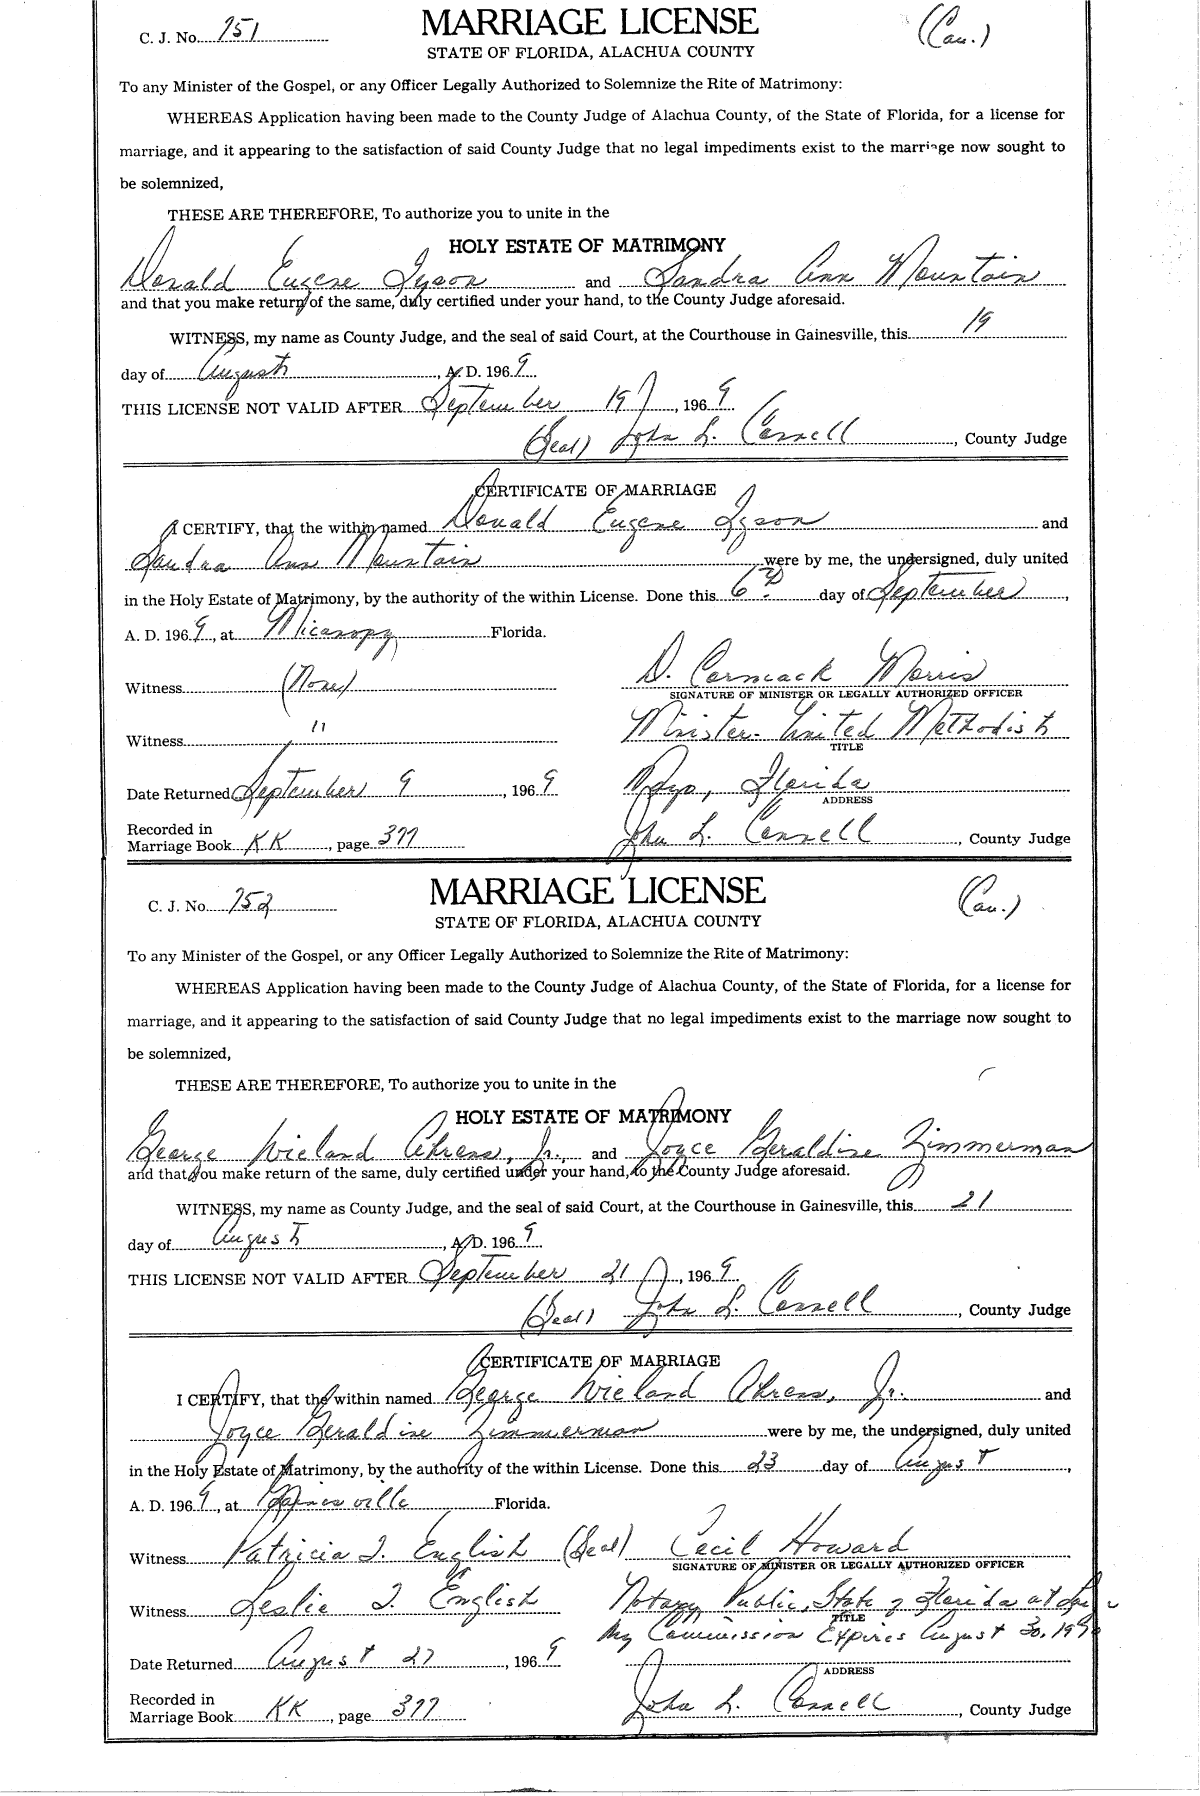 C. J. No. 751 MARRIAGE LICENSE (Cau.)
STATE OF FLORIDA, ALACHUA COUNTY
To any Minister of the Gospel, or any Officer Legally Authorized to Solemnize the Rite of Matrimony:
WHEREAS Application having been made to the County Judge of Alachua County, of the State of Florida, for a license for
marriage, and it appearing to the satisfaction of said County Judge that no legal impediments exist to the marriage now sought to
be solemnized,
THESE ARE THEREFORE, To authorize you to unite in the
HOLY ESTATE OF MATRIMONY
Donald Eugene Tyson and Sandra Ann Mountain
and that you make return of the same, duly certified under your hand, to the County Judge aforesaid.
WITNESS, my name as County Judge, and the seal of said Court, at the Courthouse in Gainesville, this 19
day of August, A. D. 1969
THIS LICENSE NOT VALID AFTER September 19, 1969
(Seal) John L. Connell, County Judge
CERTIFICATE OF MARRIAGE
I CERTIFY, that the within named Donald Eugene Tyson and
Sandra Ann Mountain were by me, the undersigned, duly united
in the Holy Estate of Matrimony, by the authority of the within License. Done this 6th day of September,
A. D. 1969, at Micanopy Florida.
Witness (None) D. Cormack Morris
SIGNATURE OF MINISTER OR LEGALLY AUTHORIZED OFFICER
Witness " Minister- United Methodist
TITLE
Date Returned September 9, 1969 Mayo, Florida
ADDRESS
Recorded in
Marriage Book KK, page 377 John L. Connell, County Judge
C. J. No. 752 MARRIAGE LICENSE (Cau.)
STATE OF FLORIDA, ALACHUA COUNTY
To any Minister of the Gospel, or any Officer Legally Authorized to Solemnize the Rite of Matrimony:
WHEREAS Application having been made to the County Judge of Alachua County, of the State of Florida, for a license for
marriage, and it appearing to the satisfaction of said County Judge that no legal impediments exist to the marriage now sought to
be solemnized,
THESE ARE THEREFORE, To authorize you to unite in the
HOLY ESTATE OF MATRIMONY
George Wieland Ahrens, Jr., and Joyce Geraldine Zimmerman
and that you make return of the same, duly certified under your hand, to the County Judge aforesaid.
WITNESS, my name as County Judge, and the seal of said Court, at the Courthouse in Gainesville, this 21
day of August, A. D. 1969
THIS LICENSE NOT VALID AFTER September 21, 1969
(Seal) John L. Connell, County Judge
CERTIFICATE OF MARRIAGE
I CERTIFY, that the within named George Wieland Ahrens, Jr. and
Joyce Geraldine Zimmerman were by me, the undersigned, duly united
in the Holy Estate of Matrimony, by the authority of the within License. Done this 23 day of August,
A. D. 1969, at Gainesville Florida.
Witness Patricia I. English (Seal) Cecil Howard
SIGNATURE OF MINISTER OR LEGALLY AUTHORIZED OFFICER
Witness Leslie I. English Notary Public, State of Florida at
TITLE
My Commission Expires August 30,
Date Returned August 27, 1969
ADDRESS
Recorded in
Marriage Book KK, page 377 John L. Connell, County Judge